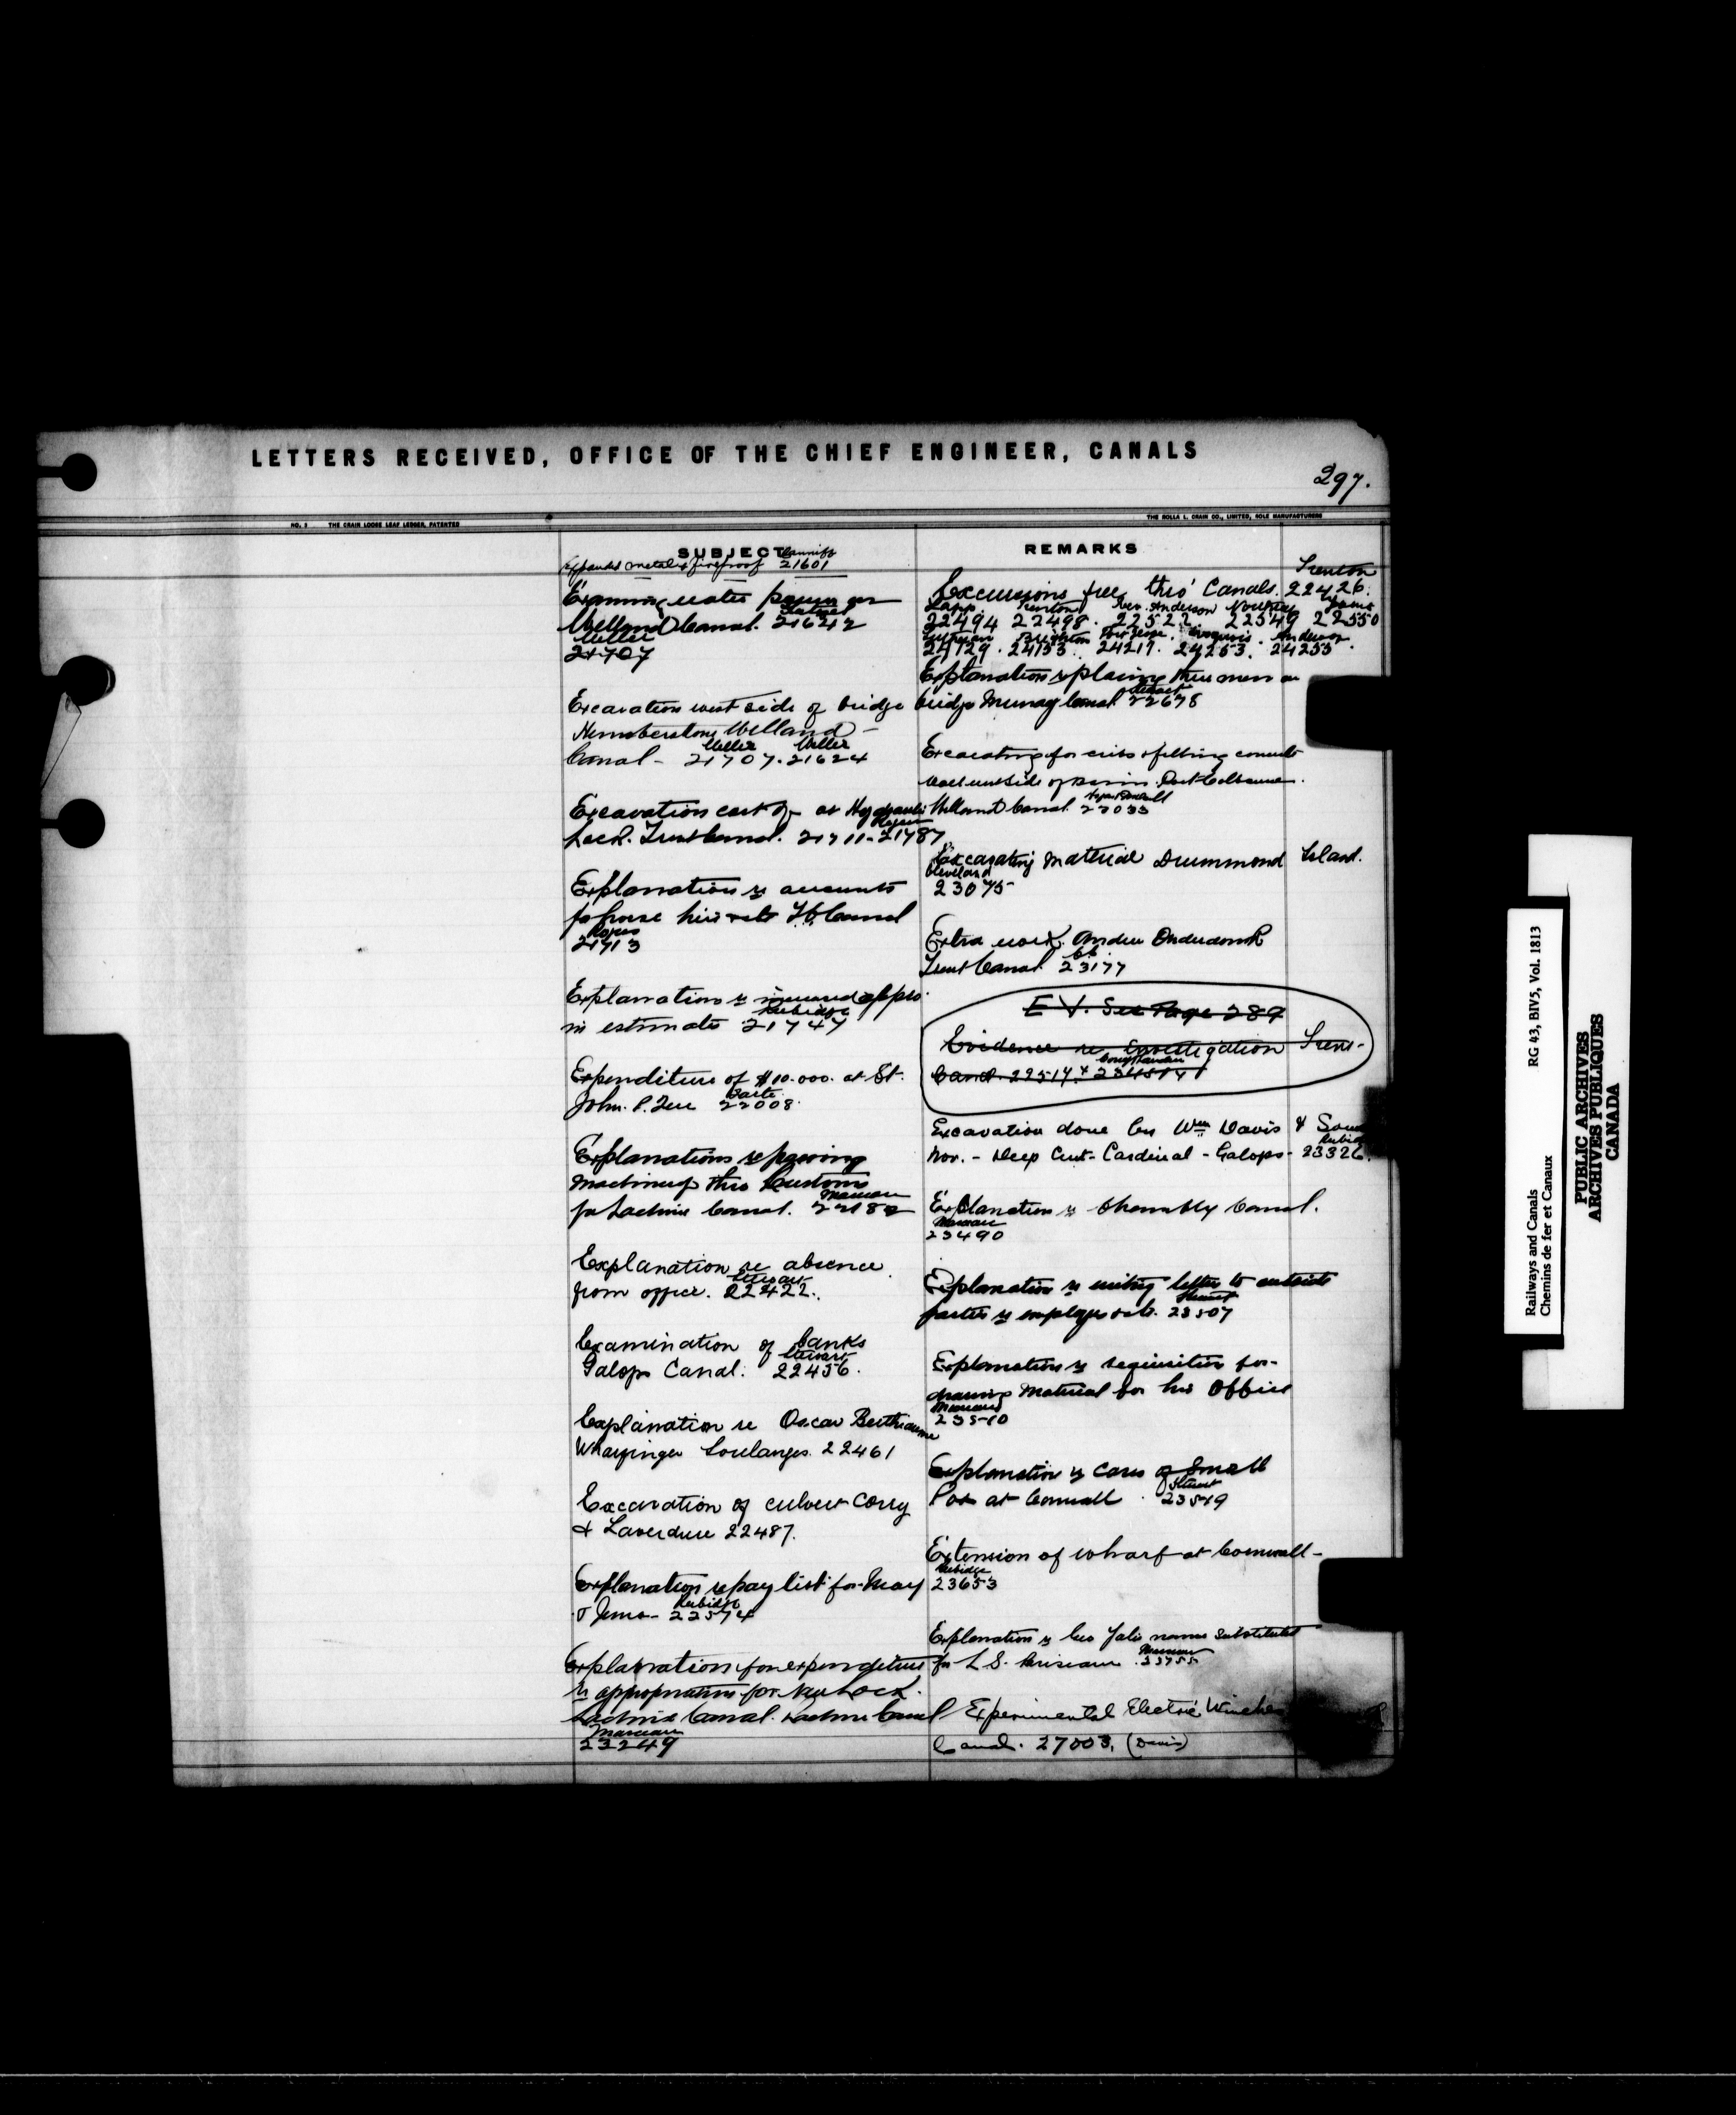 LETTERS RECEIVED, OFFICE OF THE CHIEF ENGINEER, CANALS
297.
NO. 3 THE CRAIN LOOSE LEAF LEDGER, PATENTED
THE ROLLA L. CRAIN CO., LIMITED, SOLE MANUFACTURERS
SUBJECT
Expanded metal & fireproof 21601
Welland Canal. 21642
Miller
21707
Excavation west side of bridge
Humberstone Welland
Miller Miller
Canal - 21707. 21624
Excavation cost of at Hydraulic
Rogers
Lock. Trent Canal. 21711-21787
Explanation re accounts
for horse hire
Rogers
21713
Explanation re increased appro.
Rubidge
in estimates 21747
Expenditure of $10.000. at St.
John. P. Que 22008.
Explanations re passing
Machinery thro Customs
Marceau
for Lachine Canal. 22182
Explanation re absence
Stewart
from office. 22422.
Examination of banks
Stewart
Galops Canal. 22456.
Explanation re Oscar Berthiaume
Wharfinger Soulanges. 22461
Excavation of culvert Corry
& Laverdure 22487.
Explanation re pay list for May
Rubidge
& June - 22574
Explanation for expenditure
re appropriation for New Lock.
Lachine Canal. Lachine Canal
Marceau
23249
REMARKS
Trenton
Excursions free thro' Canals. 22426.
Lapp Trenton Rev. Anderson
22494 22498. 22522. 22549 22550
Brighton Port Hope. Iroquois. Anderson
24129. 24153. 24217. 24253. 24255.
Explanation re placing three men on
bridge Murray Canal 22678
Excavating for cribs & putting concrete
west side of Port Colborne.
Welland Canal. 23033
Excavating material Drummond Island.
Cleveland
23075
Extra work. Andrew Onderdonk
Trent Canal. 23177
E V. See Page 289
Evidence re Investigation Trent
Canal. 22517.
Excavation done by Wm Davis & Sons
Rubidge
Nov. - Deep Cut - Cardinal - Galops - 23326.
Explanation re Chambly Canal.
Marceau
23490
Explanation re writing letter to outside
Stewart
parties re employees etc. 23507
Explanation re requisition for
drawing material for his Office
Marceau
23510
Explanation re Cases of Small
Stewart
Pox at Cornwall. 23519
Extension of wharf at Cornwall -
Rubidge
23653
Explanation re Geo names substituted
Marceau
for L S. 23755
Experimental Electric Winches
Canal. 27003, (Davis)
RG 43, BIV5, Vol. 1813
Railways and Canals
Chemins de fer et Canaux
PUBLIC ARCHIVES
ARCHIVES PUBLIQUES
CANADA